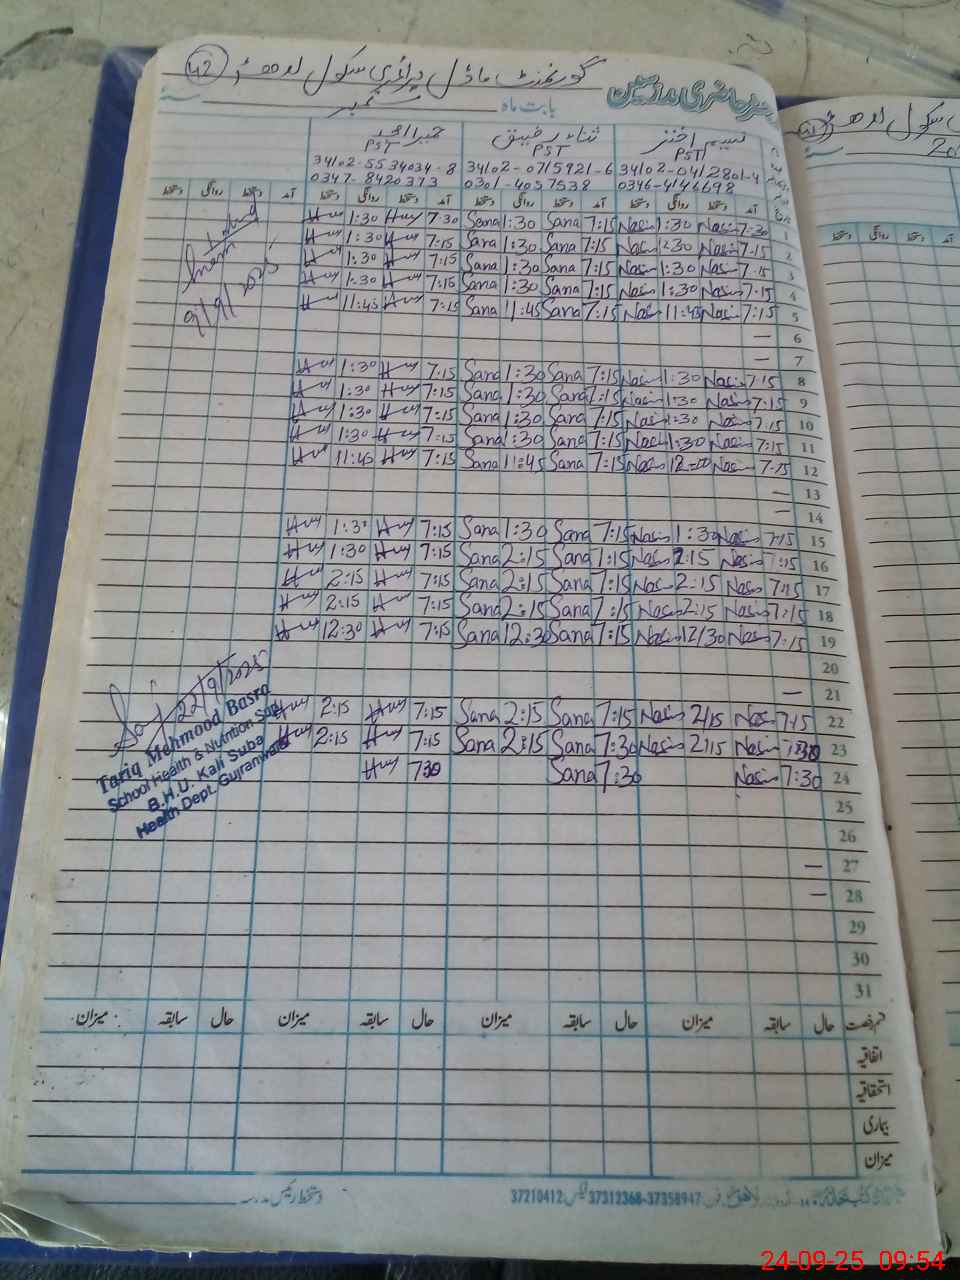 42 گورنمنٹ ماڈل پرائمری سکول
رجسٹر حاضری مدرسین
بابت ماہ ستمبر
نسیم اختر ثناء رفیق حمیرا
PST PST PST
34102-0412801-4 34102-0715921-6 34102-5534034-8
0346-4146698 0301-4037538 0347-8420373
آمد دستخط روانگی دستخط آمد دستخط روانگی دستخط آمد دستخط روانگی دستخط آمد دستخط روانگی دستخط
1 7:30 Nasim 1:30 Nasim 7:15 Sana 1:30 Sana 7:30 1:30
2 7:15 Nasim 1:30 Nasim 7:15 Sana 1:30 Sana 7:15 1:30
3 7:15 Nasim 1:30 Nasim 7:15 Sana 1:30 Sana 7:15 1:30
4 7:15 Nasim 1:30 Nasim 7:15 Sana 1:30 Sana 7:15 1:30
5 7:15 Nasim 11:45 Nasim 7:15 Sana 11:45 Sana 7:15 11:45
9/9/2025
6 —
7 —
8 7:15 Nasim 1:30 Nasim 7:15 Sana 1:30 Sana 7:15 1:30
9 7:15 Nasim 1:30 Nasim 7:15 Sana 1:30 Sana 7:15 1:30
10 7:15 Nasim 1:30 Nasim 7:15 Sana 1:30 Sana 7:15 1:30
11 7:15 Nasim 1:30 Nasim 7:15 Sana 1:30 Sana 7:15 1:30
12 7:15 Nasim 12:00 Nasim 7:15 Sana 11:45 Sana 7:15 11:45
13 —
14 —
15 7:15 Nasim 1:30 Nasim 7:15 Sana 1:30 Sana 7:15 1:30
16 7:15 Nasim 2:15 Nasim 7:15 Sana 2:15 Sana 7:15 1:30
17 7:15 Nasim 2:15 Nasim 7:15 Sana 2:15 Sana 7:15 2:15
18 7:15 Nasim 2:15 Nasim 7:15 Sana 2:15 Sana 7:15 2:15
19 7:15 Nasim 12/30 Nasim 7:15 Sana 12:30 Sana 7:15 12:30
20
21 —
22 7:15 Nasim 2/15 Nasim 7:15 Sana 2:15 Sana 7:15 2:15
23 7:30 Nasim 2:15 Nasim 7:30 Sana 2:15 Sana 7:15 2:15
24 7:30 Nasim 7:30 Sana 7:30
22/9/2025
Tariq Mehmood Basra
School Health & Nutrition Sup
B.H.U. Kali Suba
Health Dept. Gujranwala
25
26
27 —
28 —
29
30
31
قسم رخصت حال سابقہ میزان حال سابقہ میزان حال سابقہ میزان حال سابقہ میزان
اتفاقیہ
استحقاقیہ
بیماری
میزان
37210412 فیکس 37312368-37358947 فون
دستخط رئیس مدرسہ
24-09-25 09:54